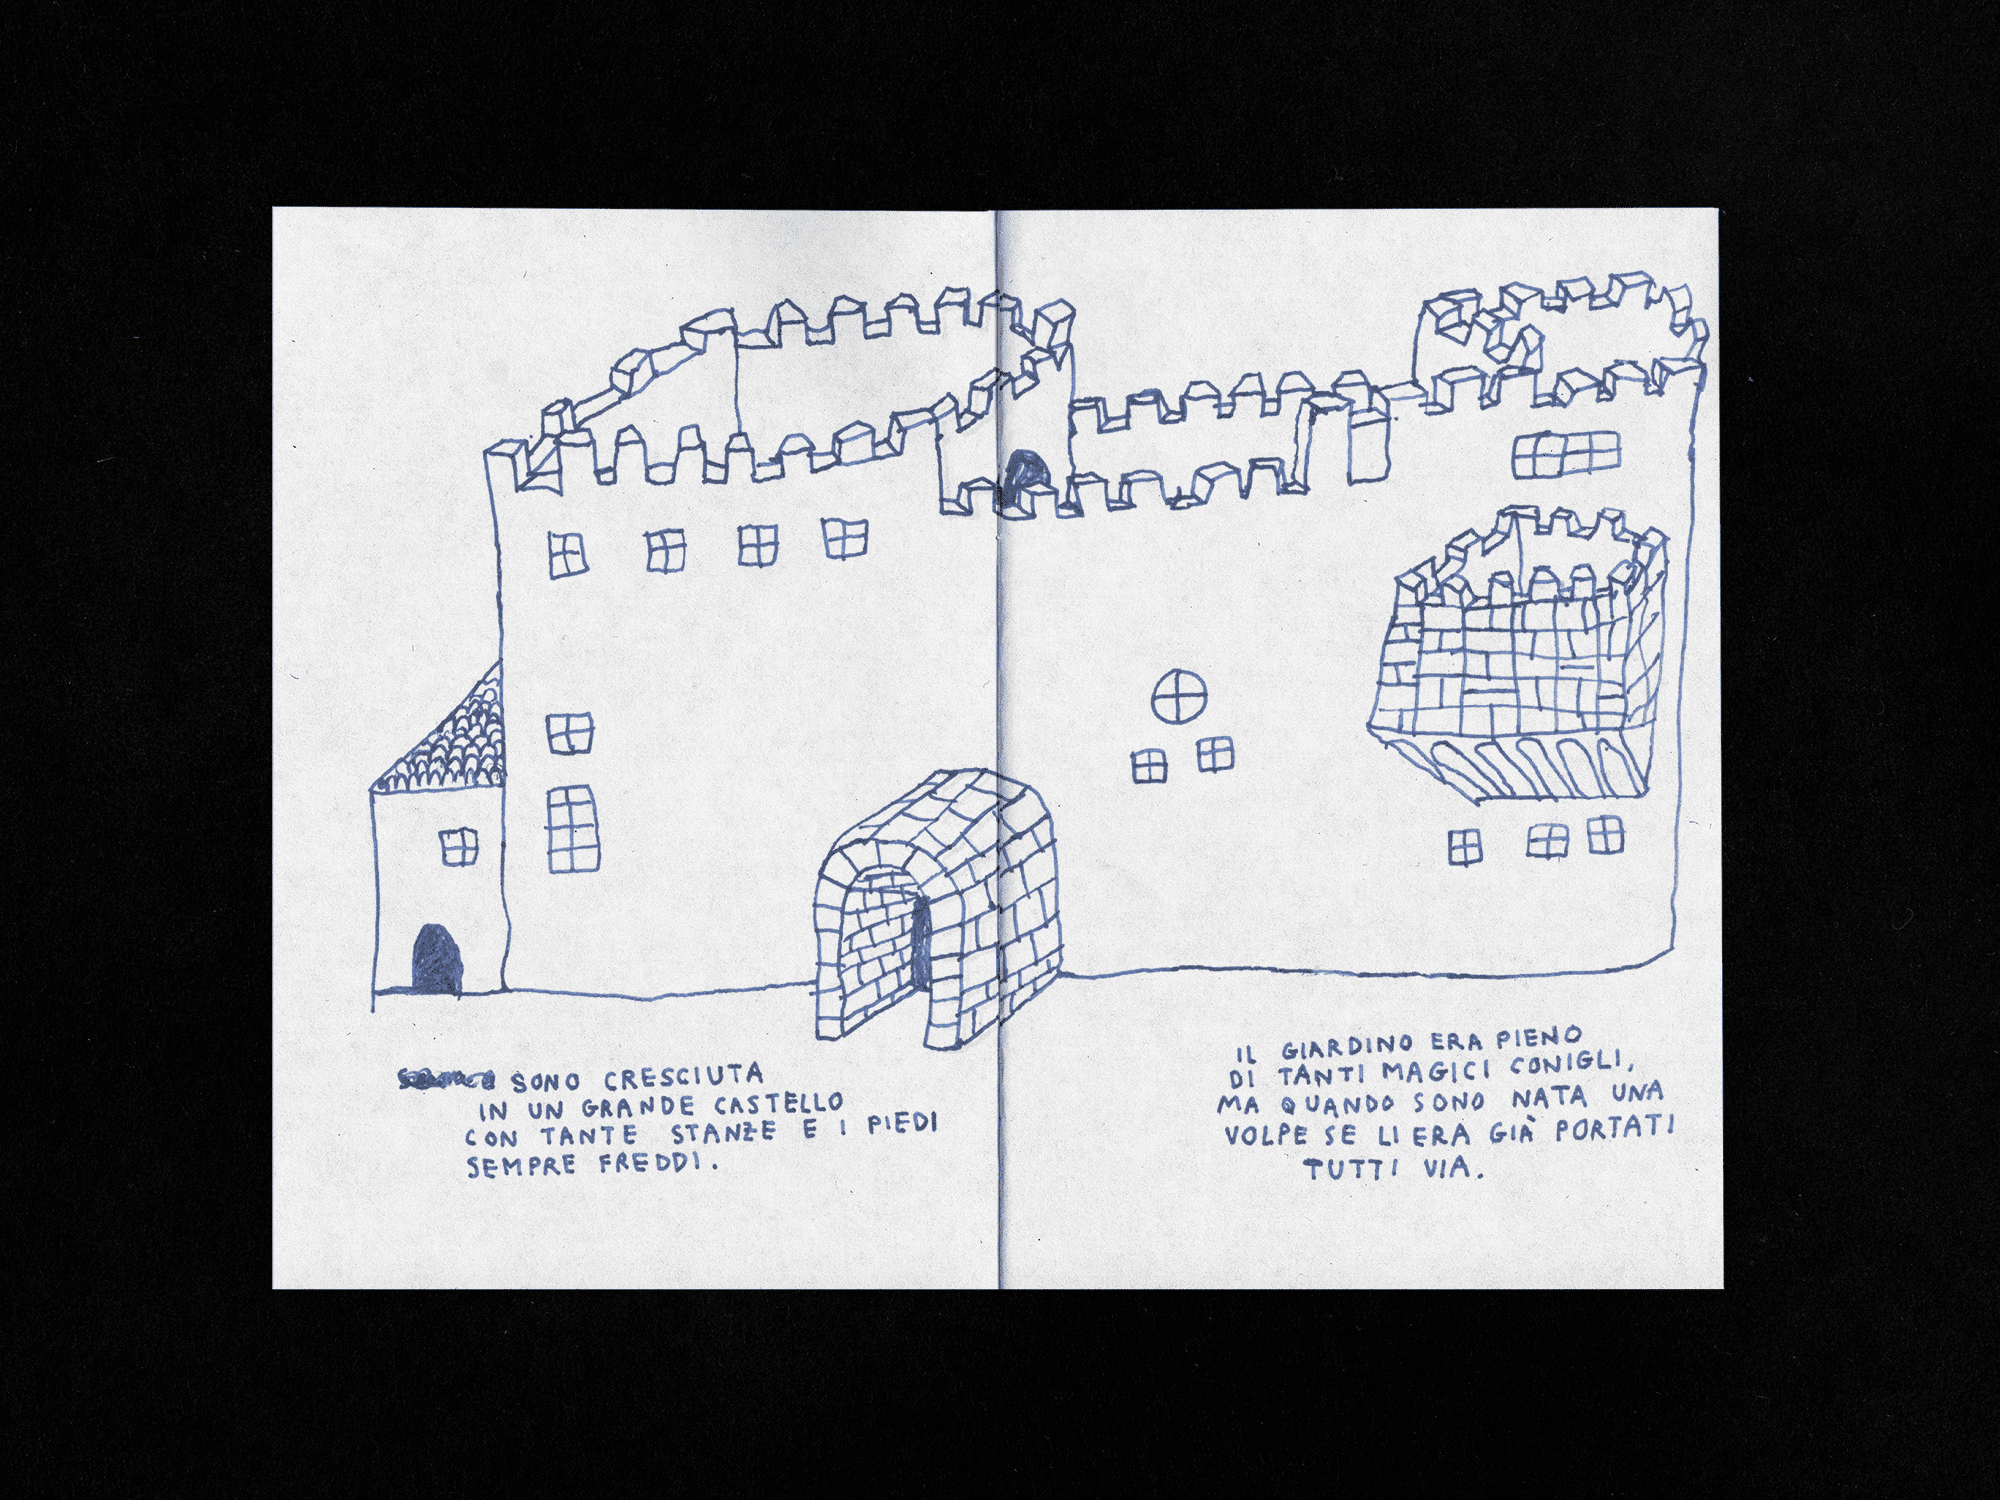 SONO CRESCIUTA
IN UN GRANDE CASTELLO
CON TANTE STANZE E I PIEDI
SEMPRE FREDDI.
IL GIARDINO ERA PIENO
DI TANTI MAGICI CONIGLI,
MA QUANDO SONO NATA UNA
VOLPE SE LI ERA GIÀ PORTATI
TUTTI VIA.